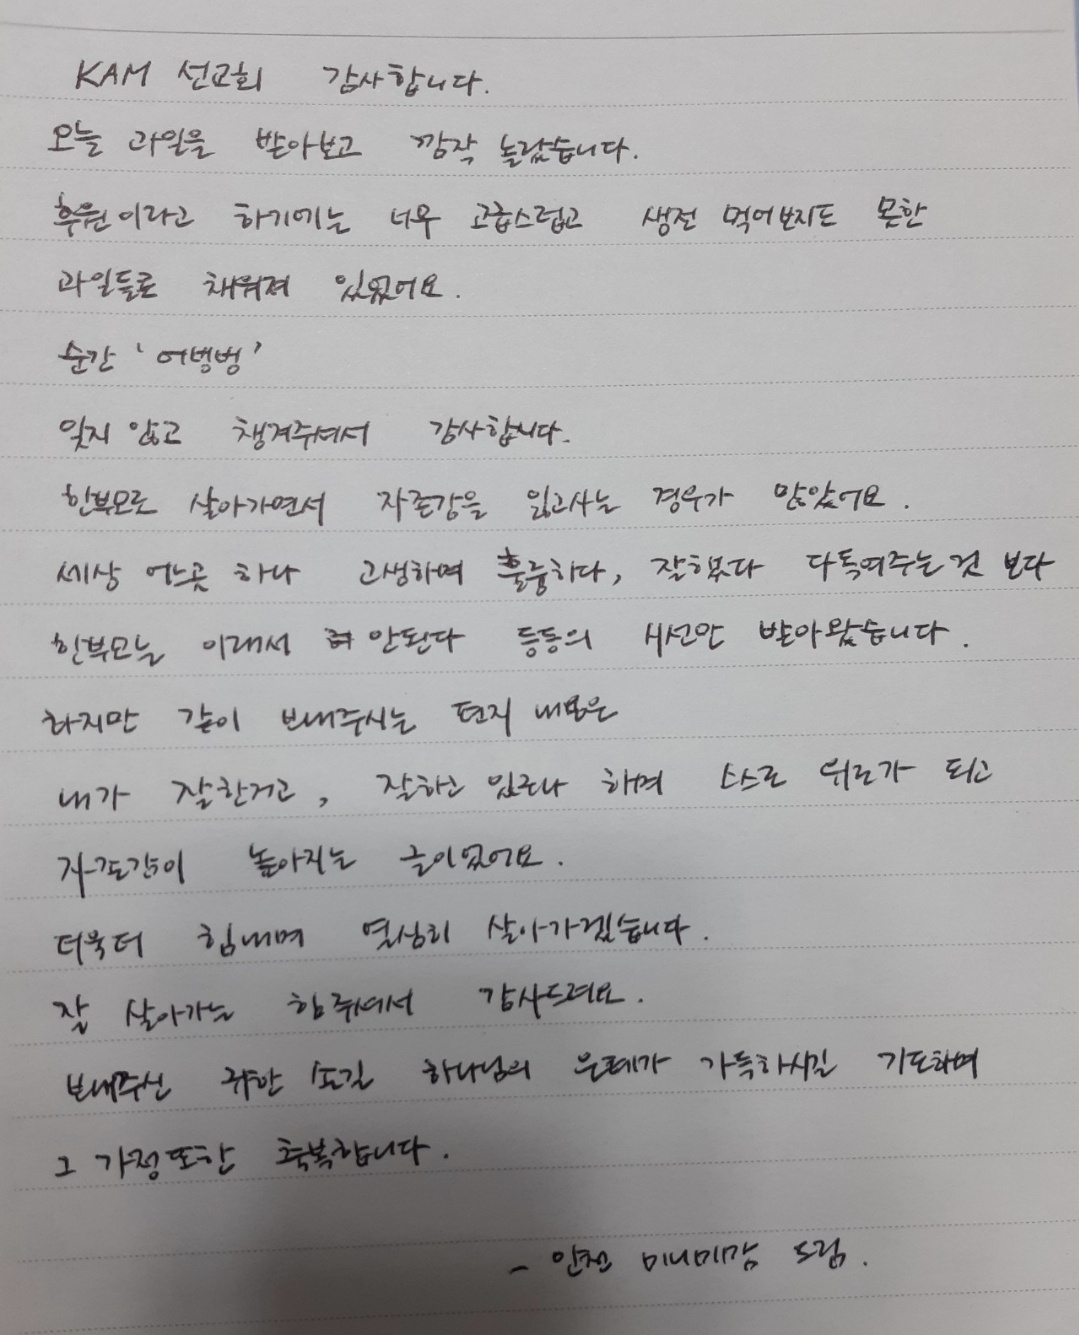 KAM 선교회 감사합니다.
오늘 과일을 받아보고 깜작 놀랐습니다.
후원이라고 하기에는 너무 고급스럽고 생전 먹어보지도 못한
과일들로 채워져 있었어요.
순간 '어벙벙'
잊지 않고 챙겨주셔서 감사합니다.
한부모로 살아가면서 자존감을 잃고사는 경우가 많았어요.
세상 어느곳 하나 고생하며 훌륭하다, 잘했다 다독여주는것 보다
한부모는 이래서 안된다 등등의 시선만 받아왔습니다.
하지만 같이 보내주시는 편지 내용은
내가 잘한거고, 잘하고 있구나 하며 스스로 위로가 되고
자존감이 높아지는 글이었어요.
더욱더 힘내며 열심히 살아가겠습니다.
잘 살아가는 힘 주셔서 감사드려요.
보내주신 귀한 손길 하나님의 은혜가 가득하시길 기도하며
그 가정또한 축복합니다.
- 인천 미니미맘 드림.